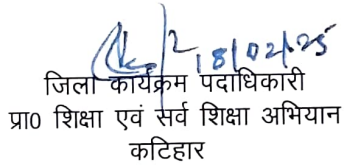 18/02/25
जिला कार्यक्रम पदाधिकारी
प्रा0 शिक्षा एवं सर्व शिक्षा अभियान
कटिहार